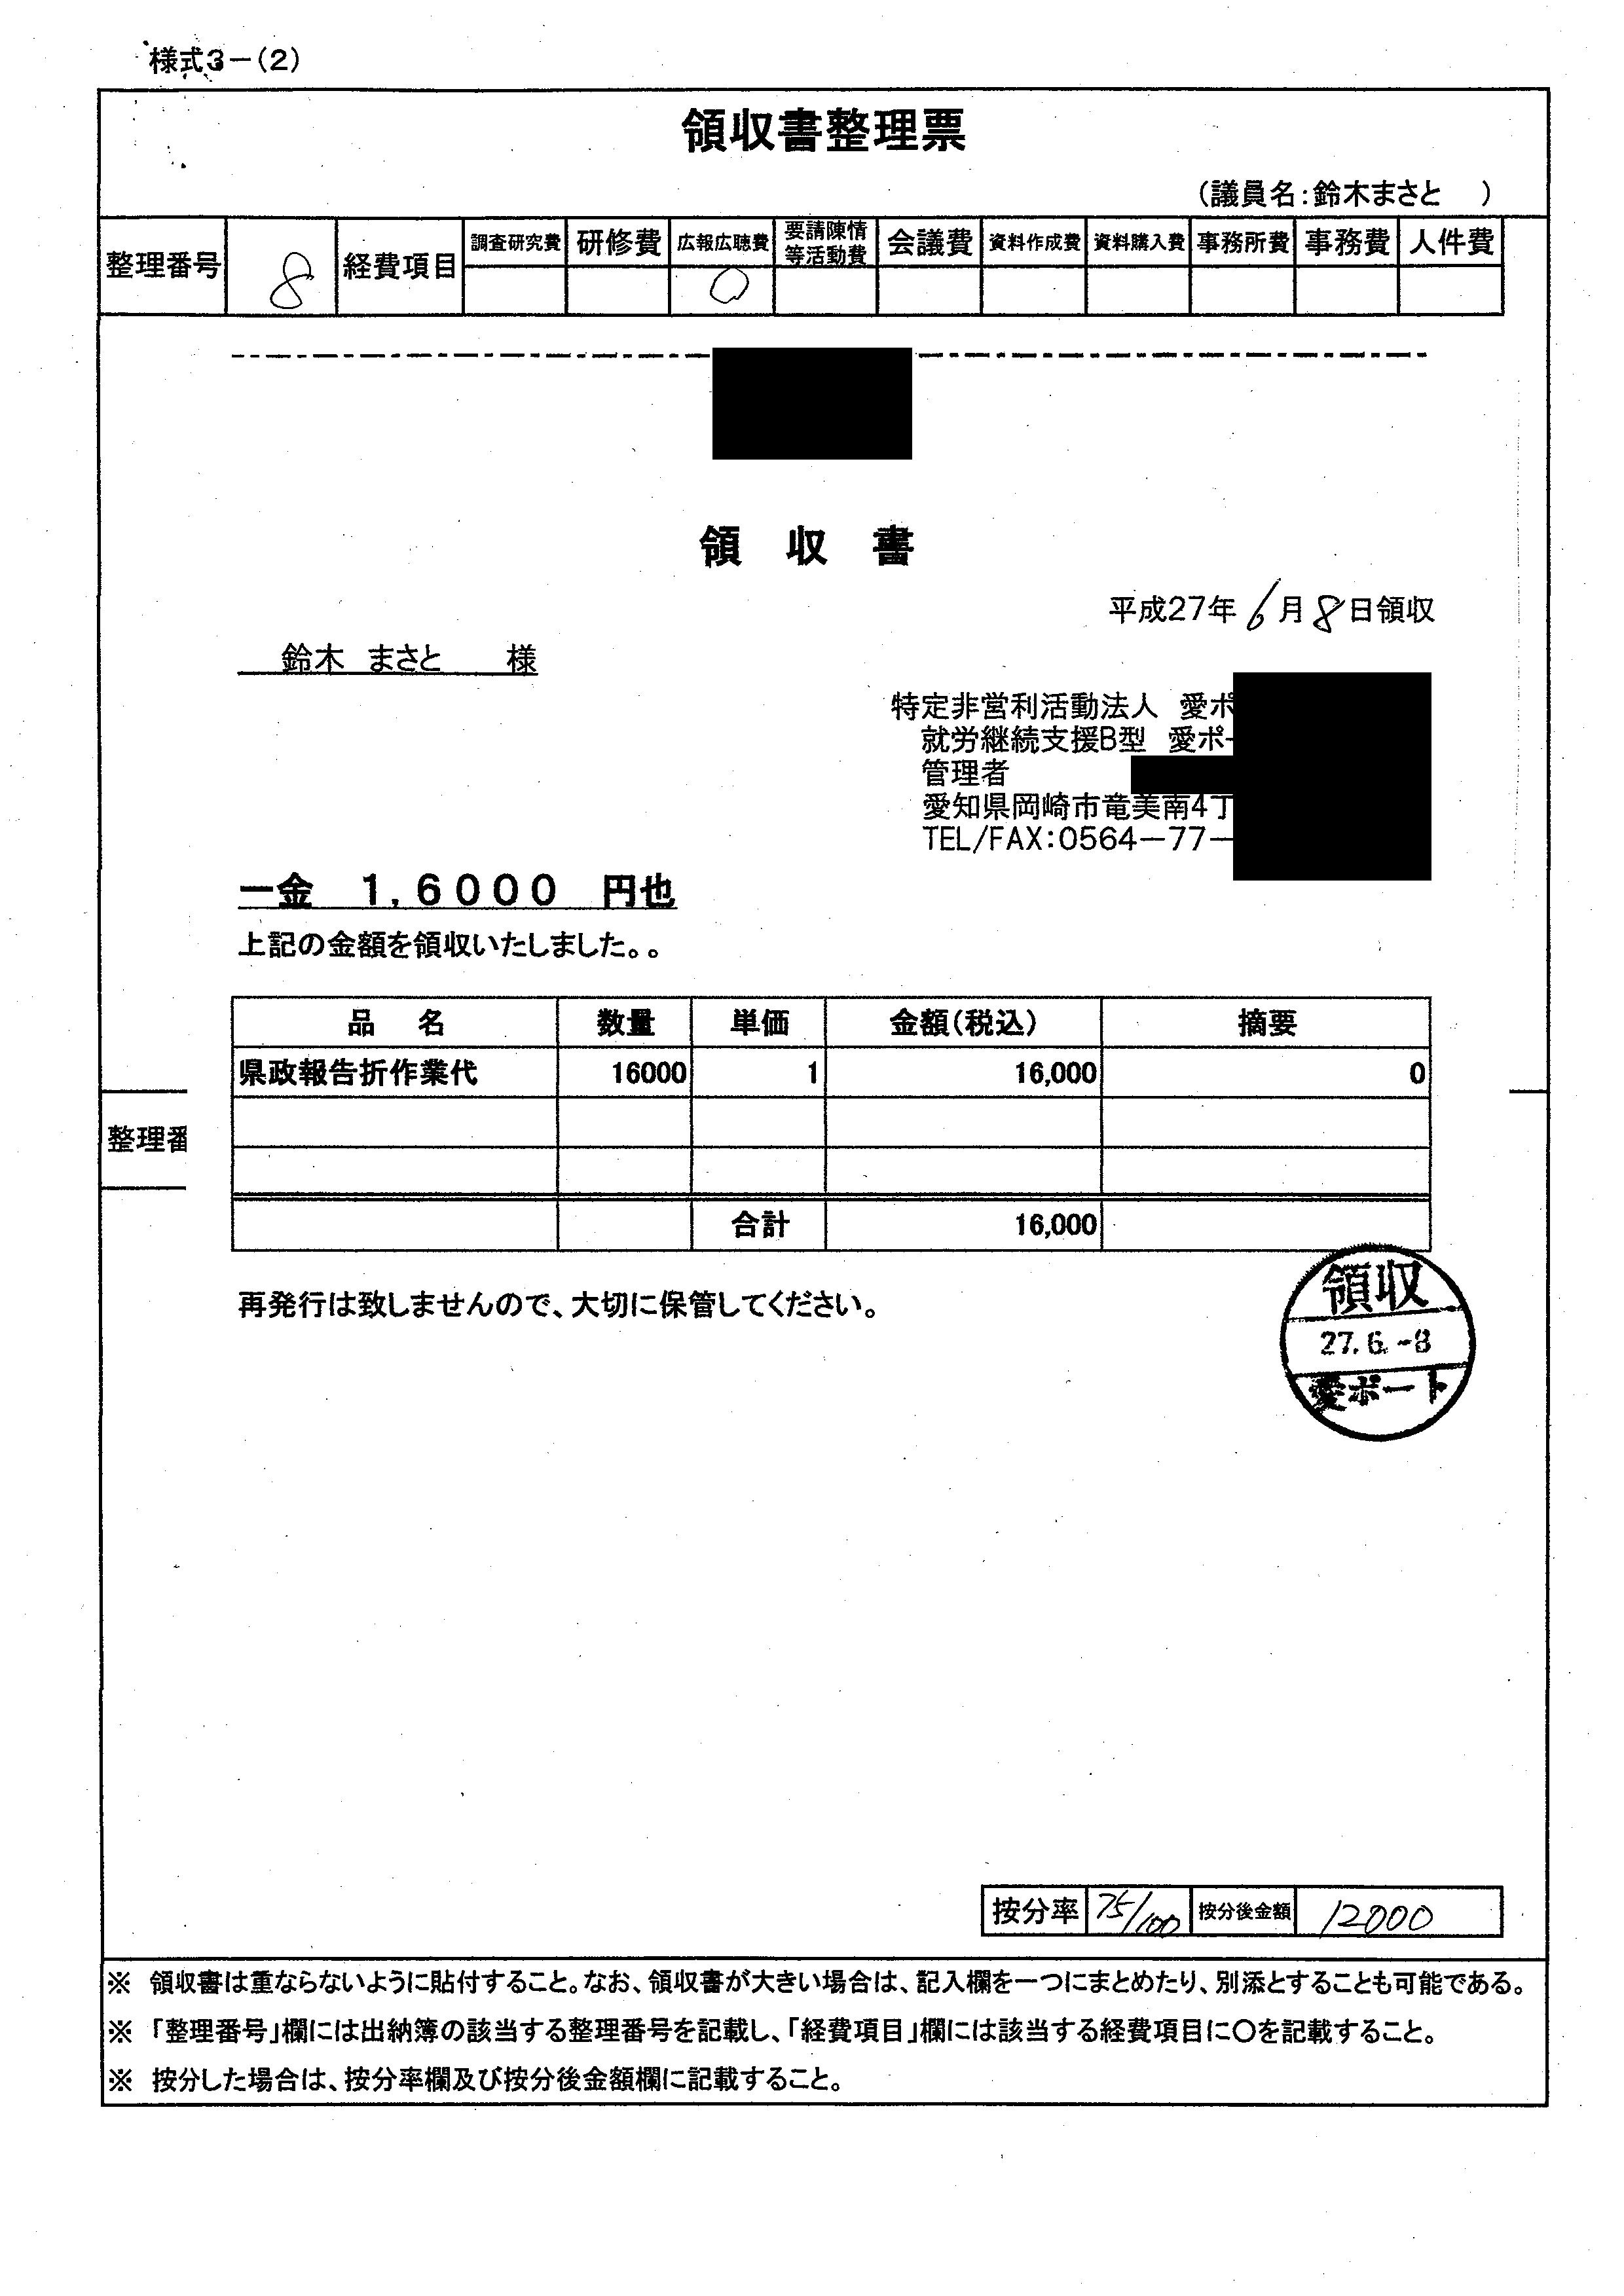 様式3－(2)
領収書整理票
(議員名:鈴木まさと　)
整理番号 8 経費項目 調査研究費 研修費 広報広聴費 要請陳情等活動費 会議費 資料作成費 資料購入費 事務所費 事務費 人件費
○
領　収　書
平成27年6月8日領収
鈴木　まさと　様
特定非営利活動法人　愛ポ
就労継続支援B型　愛ポー
管理者
愛知県岡崎市竜美南4丁
TEL/FAX:0564－77－
一金　1,6000　円也
上記の金額を領収いたしました。。
品　名 数量 単価 金額(税込) 摘要
県政報告折作業代 16000 1 16,000 0
整理番
合計 16,000
再発行は致しませんので、大切に保管してください。
領収
27.6.-8
愛ポート
按分率 75/100 按分後金額 12000
※　領収書は重ならないように貼付すること。なお、領収書が大きい場合は、記入欄を一つにまとめたり、別添とすることも可能である。
※　「整理番号」欄には出納簿の該当する整理番号を記載し、「経費項目」欄には該当する経費項目に○を記載すること。
※　按分した場合は、按分率欄及び按分後金額欄に記載すること。